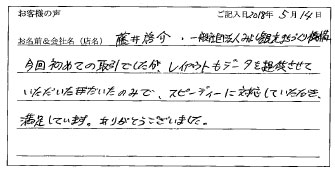 お客様の声 ご記入日2018年 5月14日
お名前&会社名(店名) 藤井啓介・一般社団法人みらい創造まちづくり機構
今回初めての取引でしたが、レイアウトもデータを提供させて
いただいたぽだいたのみで、スピーディーに対応していただき、
満足しています。ありがとうございました。